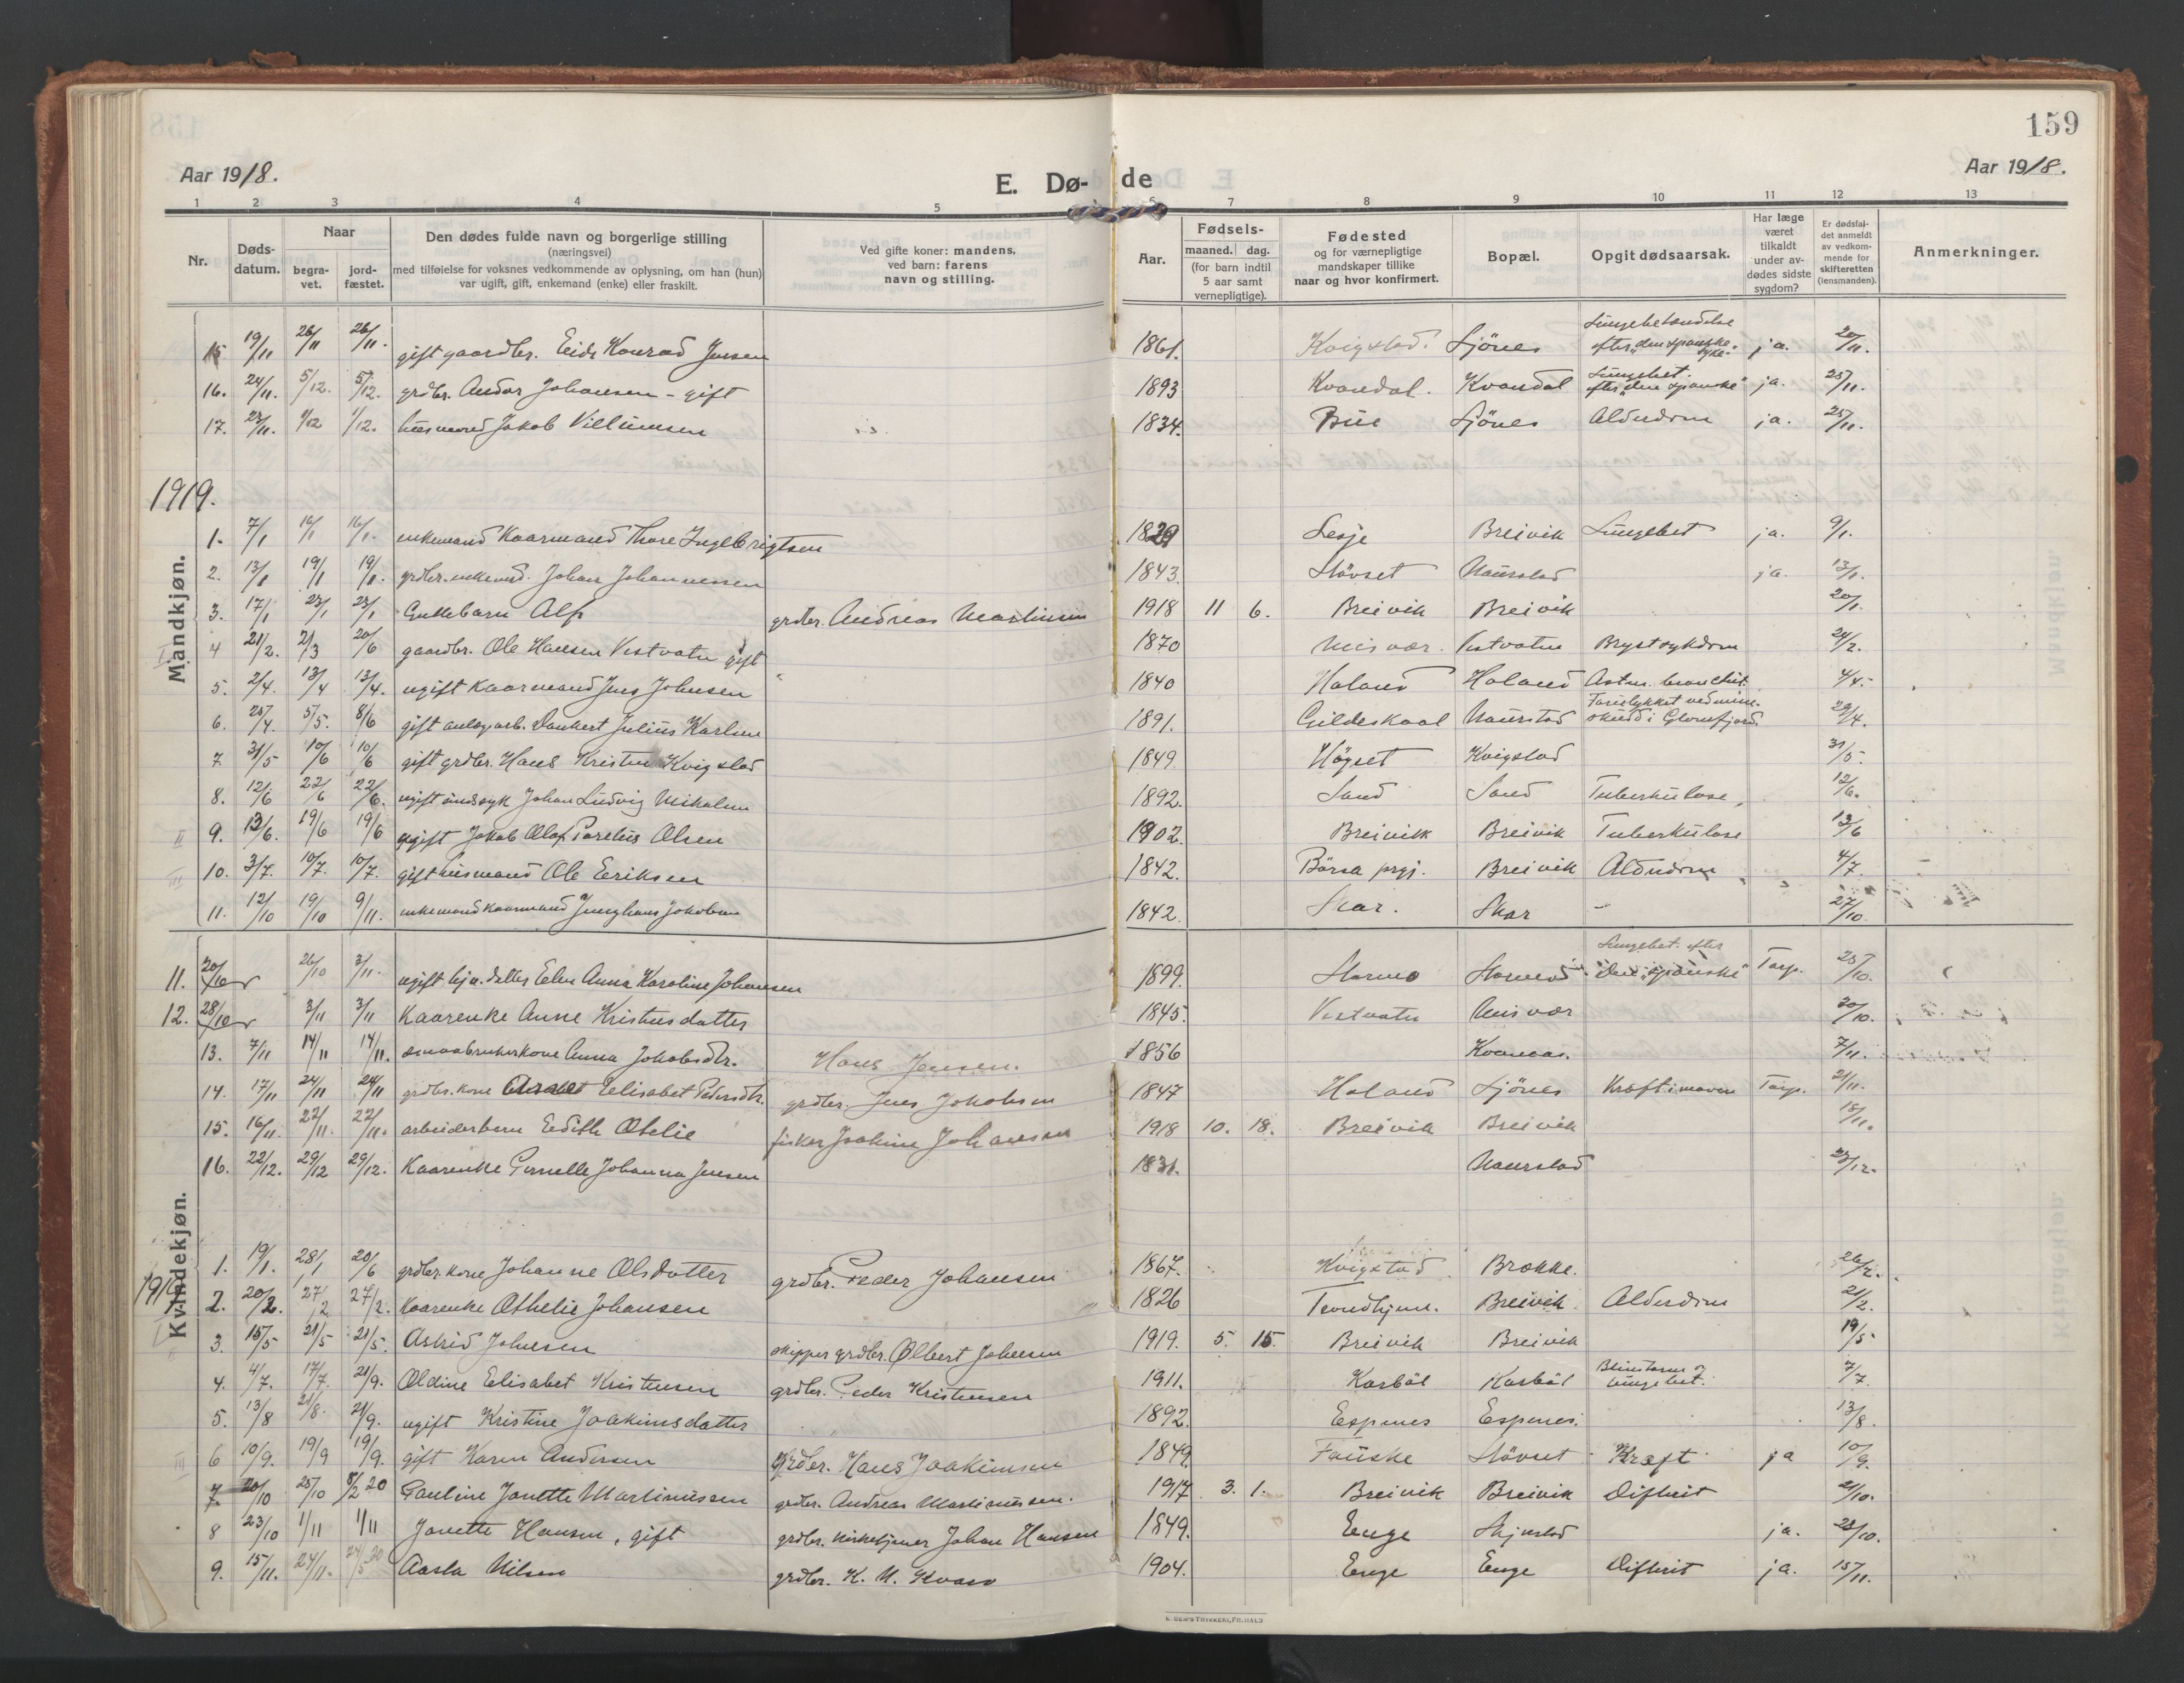 159
Aar 1918.
E. Dø-de
Aar 1918.
1 2 3 4 5 6 7 8 9 10 11 12 13
Nr.
Døds-datum.
Naar
begra-vet.
jord-fæstet.
Den dødes fulde navn og borgerlige stilling
(næringsvei)
med tilføielse for voksnes vedkommende av oplysning, om han (hun)
var ugift, gift, enkemand (enke) eller fraskilt.
Ved gifte koner: mandens,
ved barn: farens
navn og stilling.
Aar.
Fødsels-
maaned. dag.
(for barn indtil
5 aar samt
vernepligtige).
Fødested
og for værnepligtige
mandskaper tillike
naar og hvor konfirmert.
Bopæl.
Opgit dødsaarsak.
Har læge
været
tilkaldt
under av-
dødes sidste
sygdom?
Er dødsfal-
det anmeldt
av vedkom-
mende for
skifteretten
(lensmanden).
Anmerkninger.
15 19/11 26/11 26/11. gift gaardbr. Konrad Jensen 1861. Kvigstad. Sjönes Lungebetændelse efter „den spanske syke“. ja. 20/11.
16. 24/11. 5/12. 5/12. grdbr. Andor Johansen - gift 1893 Kvandal. Kvandal Lungebet. efter „den spanske“ ja. 25/11.
17. 1/12 1/12. husmand Jakob Villumsen 1834. Bue Sjönes Alderdom ja. 25/11.
1919.
Mandkjøn.
1. 7/1 16/1 16/1. enkemand Kaarmand Thore Ingebrigtsen 1829 Lesje Breivik Lungebet ja. 9/1.
2. 13/1 19/1 19/1. grdbr. enkemd. Johan Johannessen 1843. Hövset Naurstad ja. 13/1.
3. 17/1 23/1 23/1 Guttebarn Alf grdbr. Andreas Martinsen 1918 11 6. Breivik Breivik 20/1.
4 21/2. 21/3 20/6 gaardbr. Ole Hansen Vestvatn gift 1870 Misvær. Vestvatn Brystsykdom 24/2.
5. 2/4. 13/4 13/4. ugift Kaarmand Jens Johnsen 1840 Haland Haland Astm. bronchit. 4/4.
6. 25/4. 5/5. 8/6 gift anlegsarb. Dankert Julius Karlsen 1891. Gildeskaal Naurstad Forulykket ved mineskudd i Glomfjord. 29/4.
7 31/5 10/6 10/6 gift grdbr. Hans Kristen Kvigstad 1849 Högset Kvigstad 31/5.
8. 12/6 22/6 22/6. ugift sindsyk Johan Ludvig Mikalsen 1892. Sand Sand Tuberkulose, 12/6.
9. 13/6. 19/6 19/6 ugift Jakob Olaf Parelius Olsen 1902. Breivik Breivik Tuberkulose 13/6
10. 3/7. 10/7. 10/7. gift husmand Ole Eriksen 1842. Börsa prgj. Breivik Alderdom 4/7.
11. 12/10 19/10 9/11. enkemand kaarmand Jakobsen 1842. Skar. Skar - 27/10.
Kvindekjøn.
11. 20/10 26/10 3/11. ugift hjv. datter Elen Anna Karoline Johansen 1899. Stormo Stormo Lungebet. efter den „spanske“ Torp. 25/10.
12. 28/10 3/11 3/11 Kaarenke Anne Kristensdatter 1845. Vestvatn Misvær 20/10.
13. 7/11 14/11 14/11. smaabrukerkone Anna Jakobsdtr. Hans Jensen. 1856 7/11.
14. 17/11 24/11 24/11 grdbr. kone Elisabet Pedersdtr. grdbr. Jens Jakobsen 1847 Haland Sjönes Kræft i maven Torp. 21/11.
15. 16/11. 22/11. 22/11. arbeiderbarn Edith Otelie fisker Joakim Johansen 1918 10. 18. Breivik Breivik 18/11.
16. 22/12. 29/12 29/12. Kaarenke Pernelle Johanna Jensen 1831. Naurstad 23/12.
1919
1. 19/1. 28/1 20/6 grdbr. kone Johanne Olsdatter grdbr. Peder Johansen 1867. Kvigstad Brekke. 26/2.
2. 20/2. 27/2 27/2. Kaarenke Othelie Johansen 1826 Trondhjem. Breivik Alderdom 21/2.
3. 15/5 21/5 21/5. Astrid Johnsen skipper grdbr. Olbert Johnsen 1919. 5. 15. Breivik Breivik 19/5
4. 4/7. 17/7. 21/9. Oldine Elisabet Kristensen grdbr. Peder Kristensen 1911. Karbøl Karbøl 7/7.
5. 13/8 21/8. 21/9. ugift Kristine Joakimsdatter 1892. Espenes Espenes. 13/8.
6 10/9. 19/9 19/9. gift Karen Andersen Grdbr. Hans Joakimsen 1849. Fauske Hövset Kræft ja 10/9.
7. 20/10 25/10 8/2 20 Pauline Janette Martinussen grdbr. Andreas Martinussen. 1917 3. 1. Breivik Breivik Difterit 21/10.
8 23/10 1/11 1/11 Janette Hansen, gift grdbr. kirketjener Johan Hansen 1849. Enge Skjerstad ja. 28/10.
9. 15/11. 24/11. 24/5 20 Aasta Nilsen grdbr. K. N. Kvæv 1904. Enge Enge Difterit ja. 15/11.